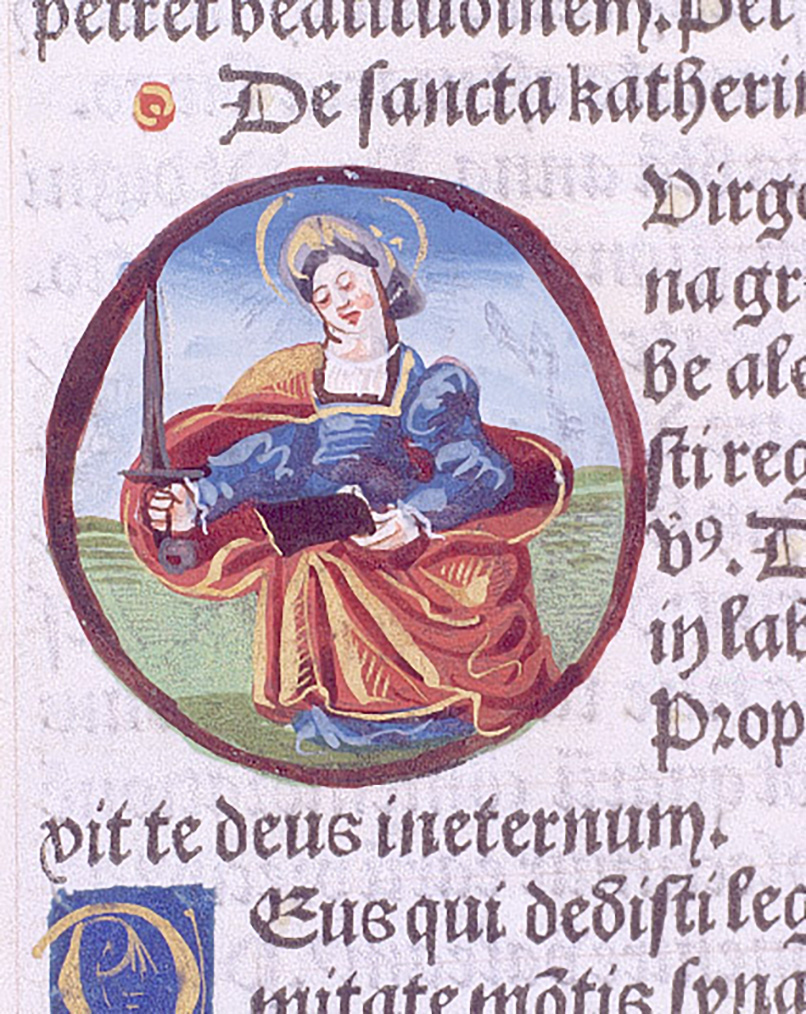 petret beatitudinem. Per
De sancta katheri
Virg
na gr
be ale
sti reg
v̂9. D
in lab
Prop
vit te deus ineternum.
Deus qui dedisti leg
mitate mõtis syna